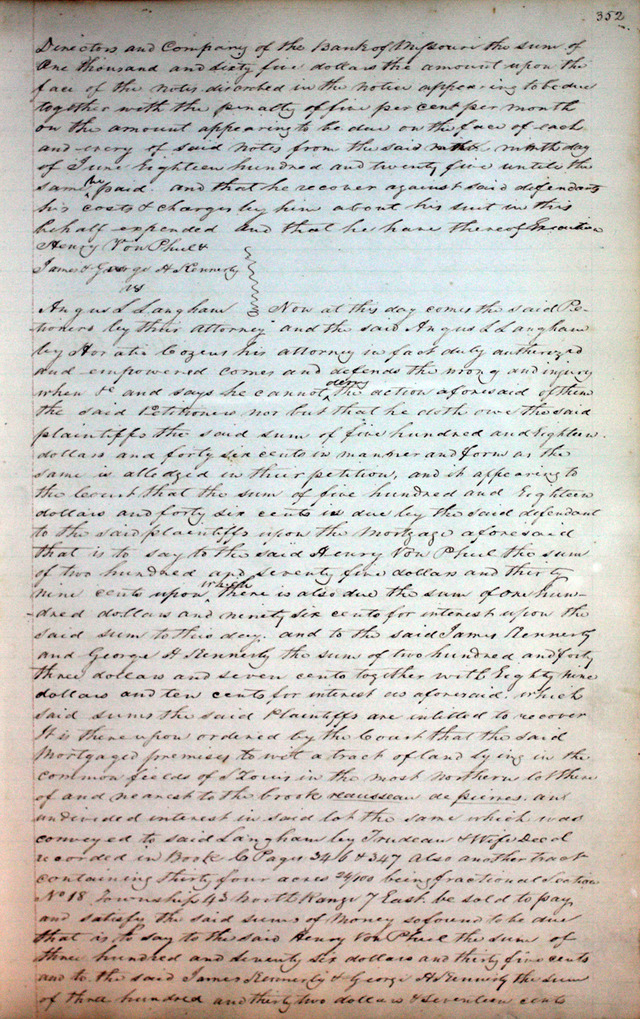 352
Directors and Company of the Bank of Missouri the sum of
One thousand and sixty five dollars the amount upon the
face of the notes discribed in the notice appearing to be due
together with the penalty of five per cent per month
on the amount appearing to be due on the face of each
and every of said notes from the said ninth day
of June Eighteen hundred and twenty five until the
same be paid. and that he recover against said defendants
his costs & charges by him about his suit in this
behalf expended and that he have thereof Execution
Henry Von Phul &
James & George H Kennerly
vs
Angus L Langham Now at this day comes the said Pe-
tioners by their attorney and the said Angus L Langham
by Horatio Cozens his attorney in fact duly authorized
and empowered comes and defends the wrong and injury
when &c and says he cannot deny the action aforesaid of them
the said Petitioners nor but that he doth owe the said
plaintiffs the said sum of five hundred and Eighteen
dollars and forty six cents in manner and form as the
same is alledged in their petition, and it appearing to
the Court that the sum of five hundred and Eighteen
dollars and forty six cents is due by the said defendant
to the said plaintiffs upon the Mortgage aforesaid
that is to say to the said Henry Von Phul the sum
of two hundred and seventy five dollars and thirty
nine cents upon which there is also due the sum of one hun-
dred dollars and ninety six cents for interest upon the
said sum to this day. and to the said James Kennerly
and George H Kennerly the sum of two hundred and forty
three dollars and seven cents together with Eighty nine
dollars and ten cents for interest as aforesaid. which
said sums the said Plaintiffs are intitled to recover
It is thereupon ordered by the Court that the said
Mortgaged premises to wit a tract of land lying in the
common fields of St Louis in the most northern lot there
of and nearest to the brook ruisseau de pierres. an
undivided interest in said lot the same which was
conveyed to said Langham by Trudeau & Wife Deed
recorded in Book C Pages 346 & 347 Also another tract
containing thirty four acres /100 being fractional Section
No 18 Township 43 North Range 7 East. be sold to pay
and satisfy the said sums of Money so found to be due
that is to say to the said Henry Von Phul the sum of
three hundred and seventy six dollars and thirty five cents
and to the said James Kennerly & George H Kennerly the sum
of three hundred and thirty two dollars & seventeen cents